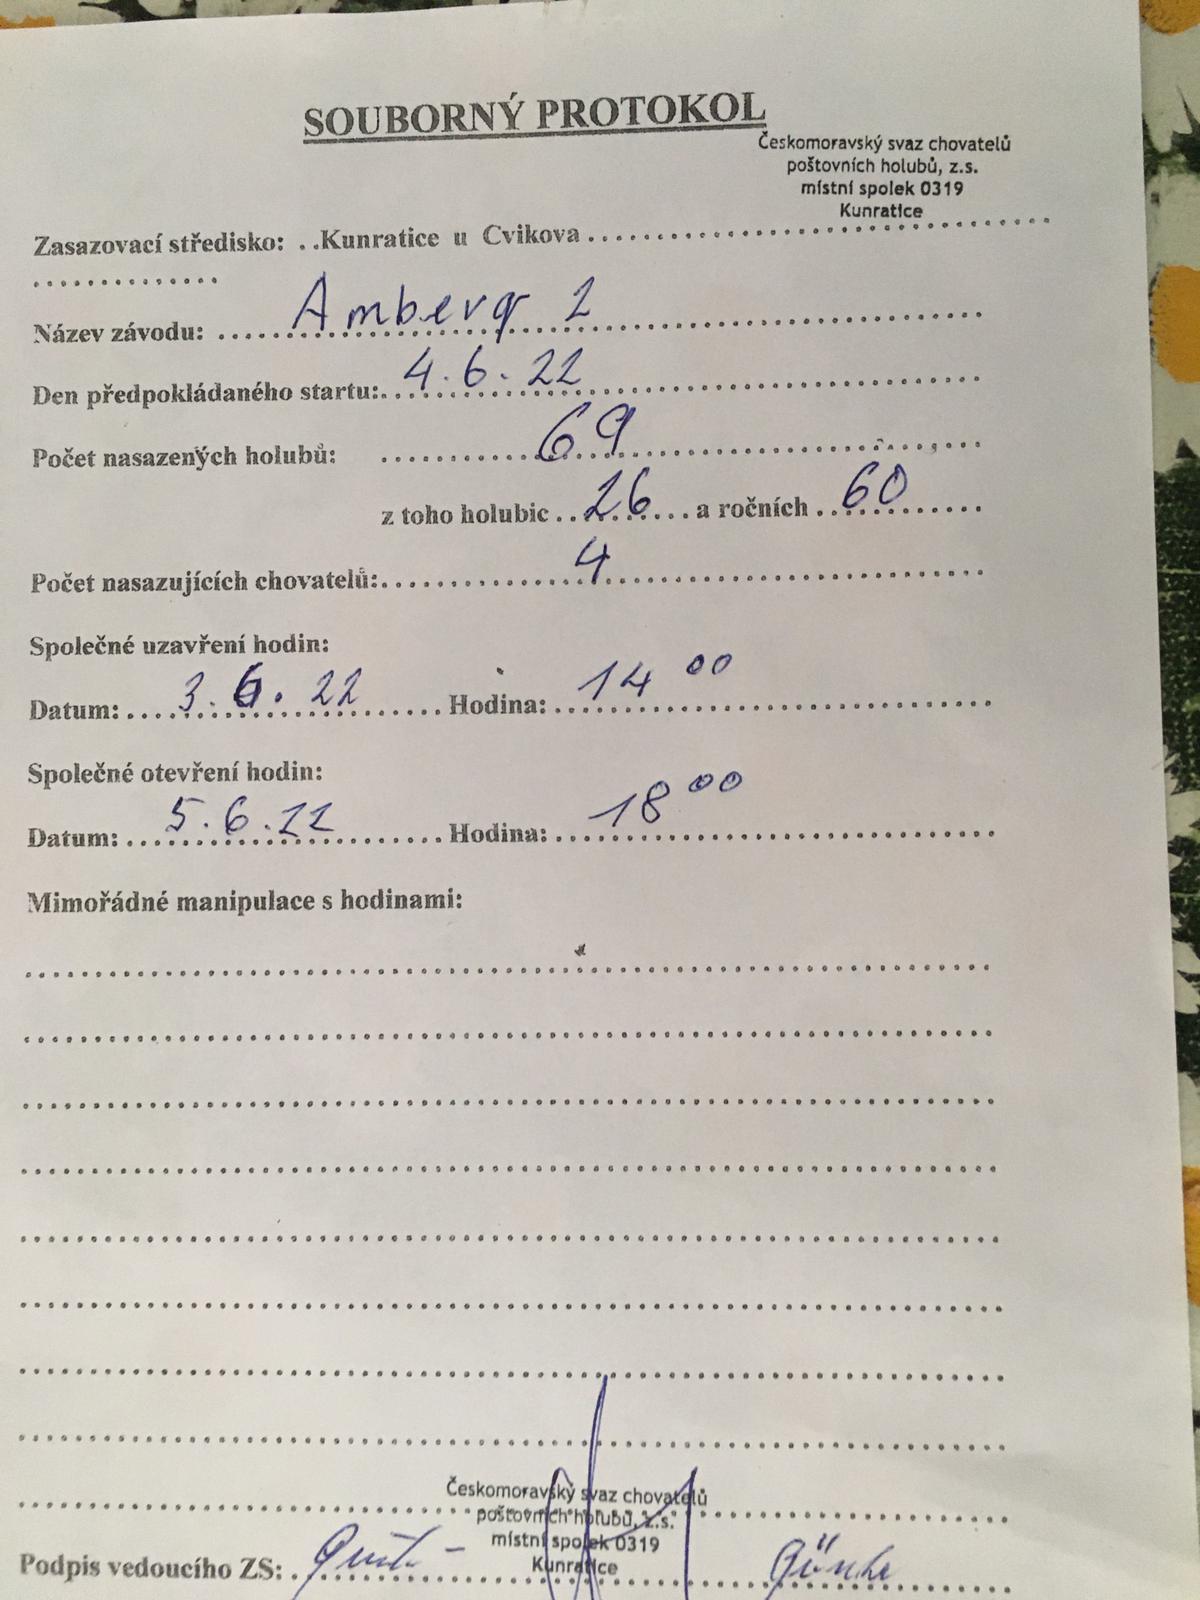 SOUBORNÝ PROTOKOL
Českomoravský svaz chovatelů
poštovních holubů, z.s.
místní spolek 0319
Kunratice
Zasazovací středisko: ..Kunratice u Cvikova
Název závodu: Amberg 2
Den předpokládaného startu: 4.6.22
Počet nasazených holubů: 69
z toho holubic 26 a ročních 60
Počet nasazujících chovatelů: 4
Společné uzavření hodin:
Datum: 3.6.22 Hodina: 14 00
Společné otevření hodin:
Datum: 5.6.22 Hodina: 18 00
Mimořádné manipulace s hodinami:
Českomoravský svaz chovatelů
poštovních holubů, z.s.
místní spolek 0319
Kunratice
Podpis vedoucího ZS: